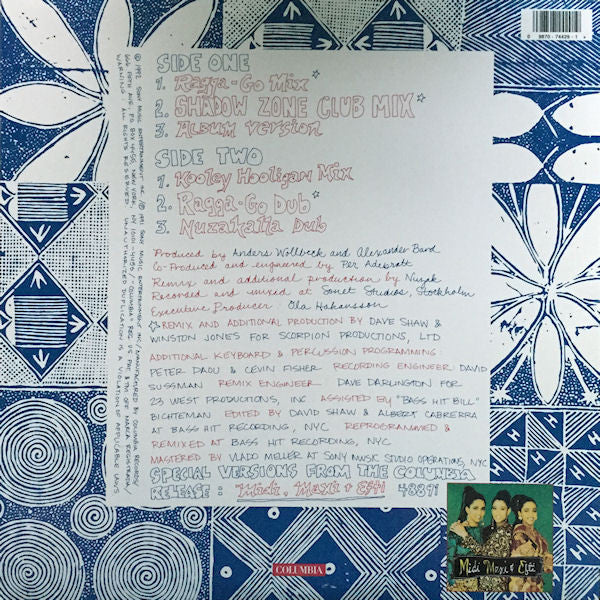 0 9870-74429-1 4
SIDE ONE
1. Ragga-Go Mix ☆
2. SHADOW ZONE CLUB MIX ☆
3. Album Version
SIDE TWO
1. Kooley Hooligan Mix
2. Ragga-Go Dub ☆
3. Nuzakalla Dub
Produced by Anders Wollbeck and Alexander Bard
Co-Produced and engineered by Per Adebratt
Remix and additional production by Nuzak
Recorded and mixed at Sonet Studios, Stockholm
Executive Producer: Ola Hakansson
☆ REMIX AND ADDITIONAL PRODUCTION BY DAVE SHAW &
WINSTON JONES FOR SCORPION PRODUCTIONS, LTD
ADDITIONAL KEYBOARD & PERCUSSION PROGRAMMING:
PETER DAOU & CEVIN FISHER RECORDING ENGINEER: DAVID
SUSSMAN REMIX ENGINEER DAVE DARLINGTON FOR
23 WEST PRODUCTIONS, INC ASSISTED BY "BASS HIT BILL"
BICHTEMAN EDITED BY DAVID SHAW & ALBERT CABRERRA
AT BASS HIT RECORDING, NYC REPROGRAMMED &
REMIXED AT BASS HIT RECORDING, NYC
MASTERED BY VLADO MELLER AT SONY MUSIC STUDIO OPERATIONS, NYC
SPECIAL VERSIONS FROM THE COLUMBIA
RELEASE: Midi, Maxi + Efti 48871
© 1992 SONY MUSIC ENTERTAINMENT INC./℗ 1991 SONY MUSIC ENTERTAINMENT INC./MANUFACTURED BY COLUMBIA RECORDS/
666 FIFTH AVE., P.O. BOX 4455, NEW YORK, NY 10101-4450/"COLUMBIA" REG. U.S. PAT. & TM. OFF. MARCA REGISTRADA/
WARNING: ALL RIGHTS RESERVED. UNAUTHORIZED DUPLICATION IS A VIOLATION OF APPLICABLE LAWS
COLUMBIA
Midi Maxi & Efti